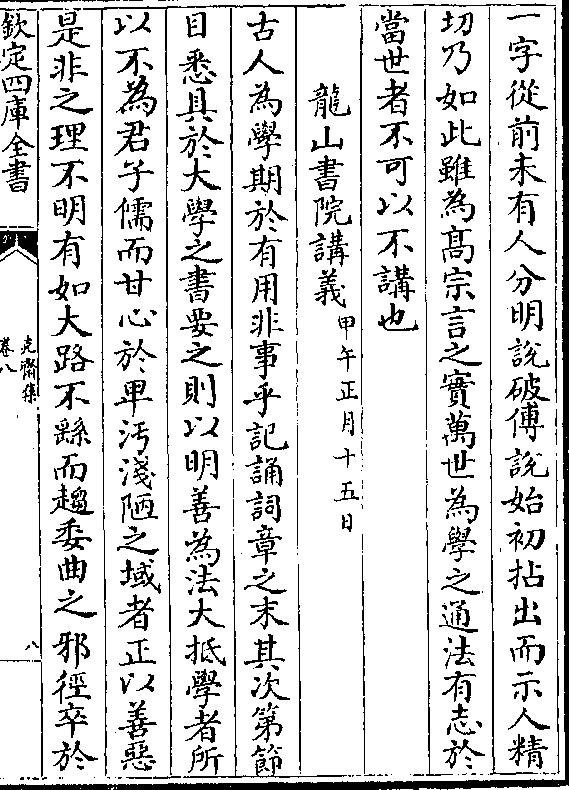 一字從前未有人分明說破傅說始初拈出而示人精
切乃如此雖為髙宗言之實萬世為學之通法有志於
當世者不可以不講也
龍山書院講義甲午正月十五日
古人為學期於有用非事乎記誦詞章之末其次第節
目悉具於大學之書要之則以明善為法大抵學者所
以不為君子儒而甘心於卑汚淺陋之域者正以善惡
是非之理不明有如大路不繇而趨委曲之邪徑卒於
欽定四庫全書
克齋集
卷八
八